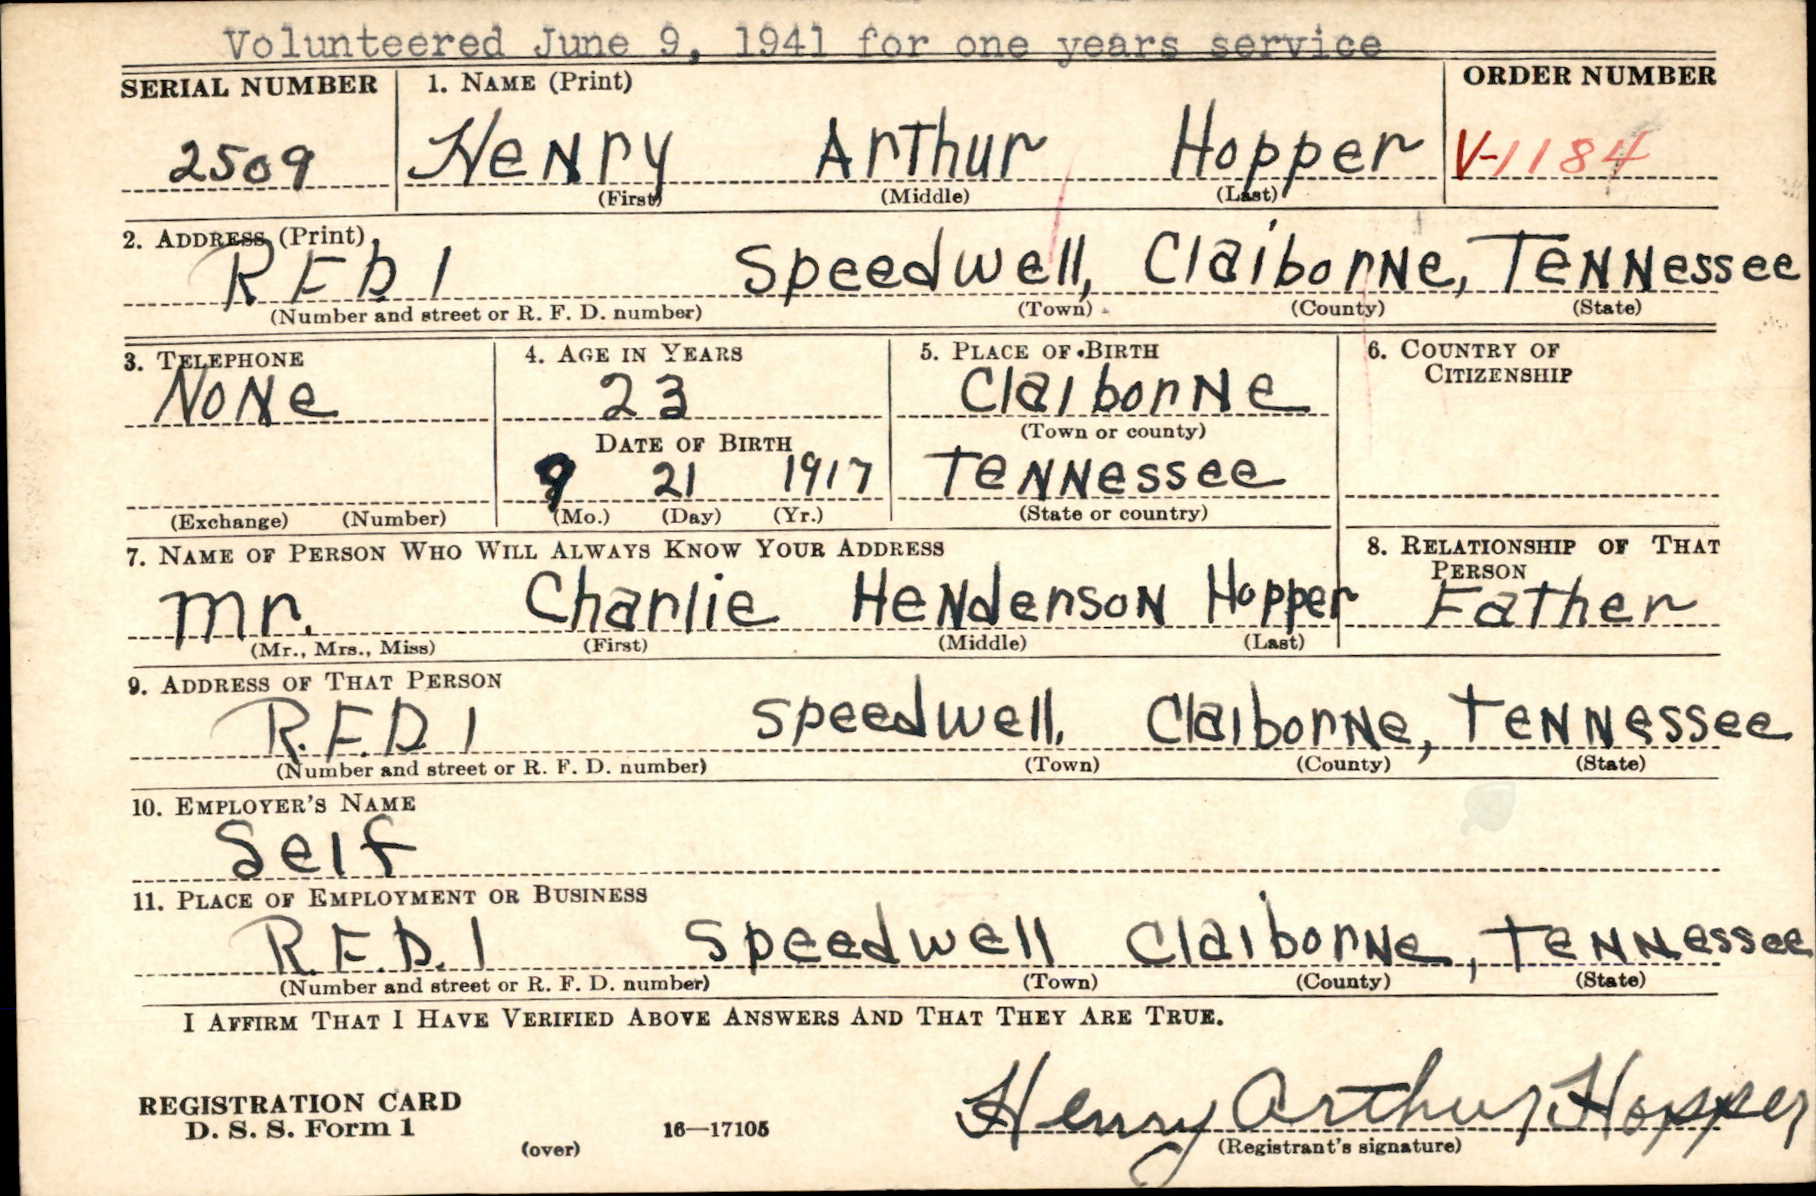 Volunteered June 9, 1941 for one years service
SERIAL NUMBER 1. NAME (Print) ORDER NUMBER
2509 Henry Arthur Hopper V-1184
(First) (Middle) (Last)
2. ADDRESS (Print)
R.F.D. 1 Speedwell, Claiborne, Tennessee
(Number and street or R. F. D. number) (Town) (County) (State)
3. TELEPHONE 4. AGE IN YEARS 5. PLACE OF BIRTH 6. COUNTRY OF CITIZENSHIP
None 23 Claiborne
DATE OF BIRTH (Town or county)
9 21 1917 Tennessee
(Exchange) (Number) (Mo.) (Day) (Yr.) (State or country)
7. NAME OF PERSON WHO WILL ALWAYS KNOW YOUR ADDRESS 8. RELATIONSHIP OF THAT PERSON
Mr. Charlie Henderson Hopper Father
(Mr., Mrs., Miss) (First) (Middle) (Last)
9. ADDRESS OF THAT PERSON
R.F.D. 1 Speedwell, Claiborne, Tennessee
(Number and street or R. F. D. number) (Town) (County) (State)
10. EMPLOYER'S NAME
Self
11. PLACE OF EMPLOYMENT OR BUSINESS
R.F.D. 1 Speedwell Claiborne, Tennessee
(Number and street or R. F. D. number) (Town) (County) (State)
I AFFIRM THAT I HAVE VERIFIED ABOVE ANSWERS AND THAT THEY ARE TRUE.
REGISTRATION CARD
D. S. S. Form 1 (over) 16—17105 Henry Arthur Hopper
(Registrant's signature)